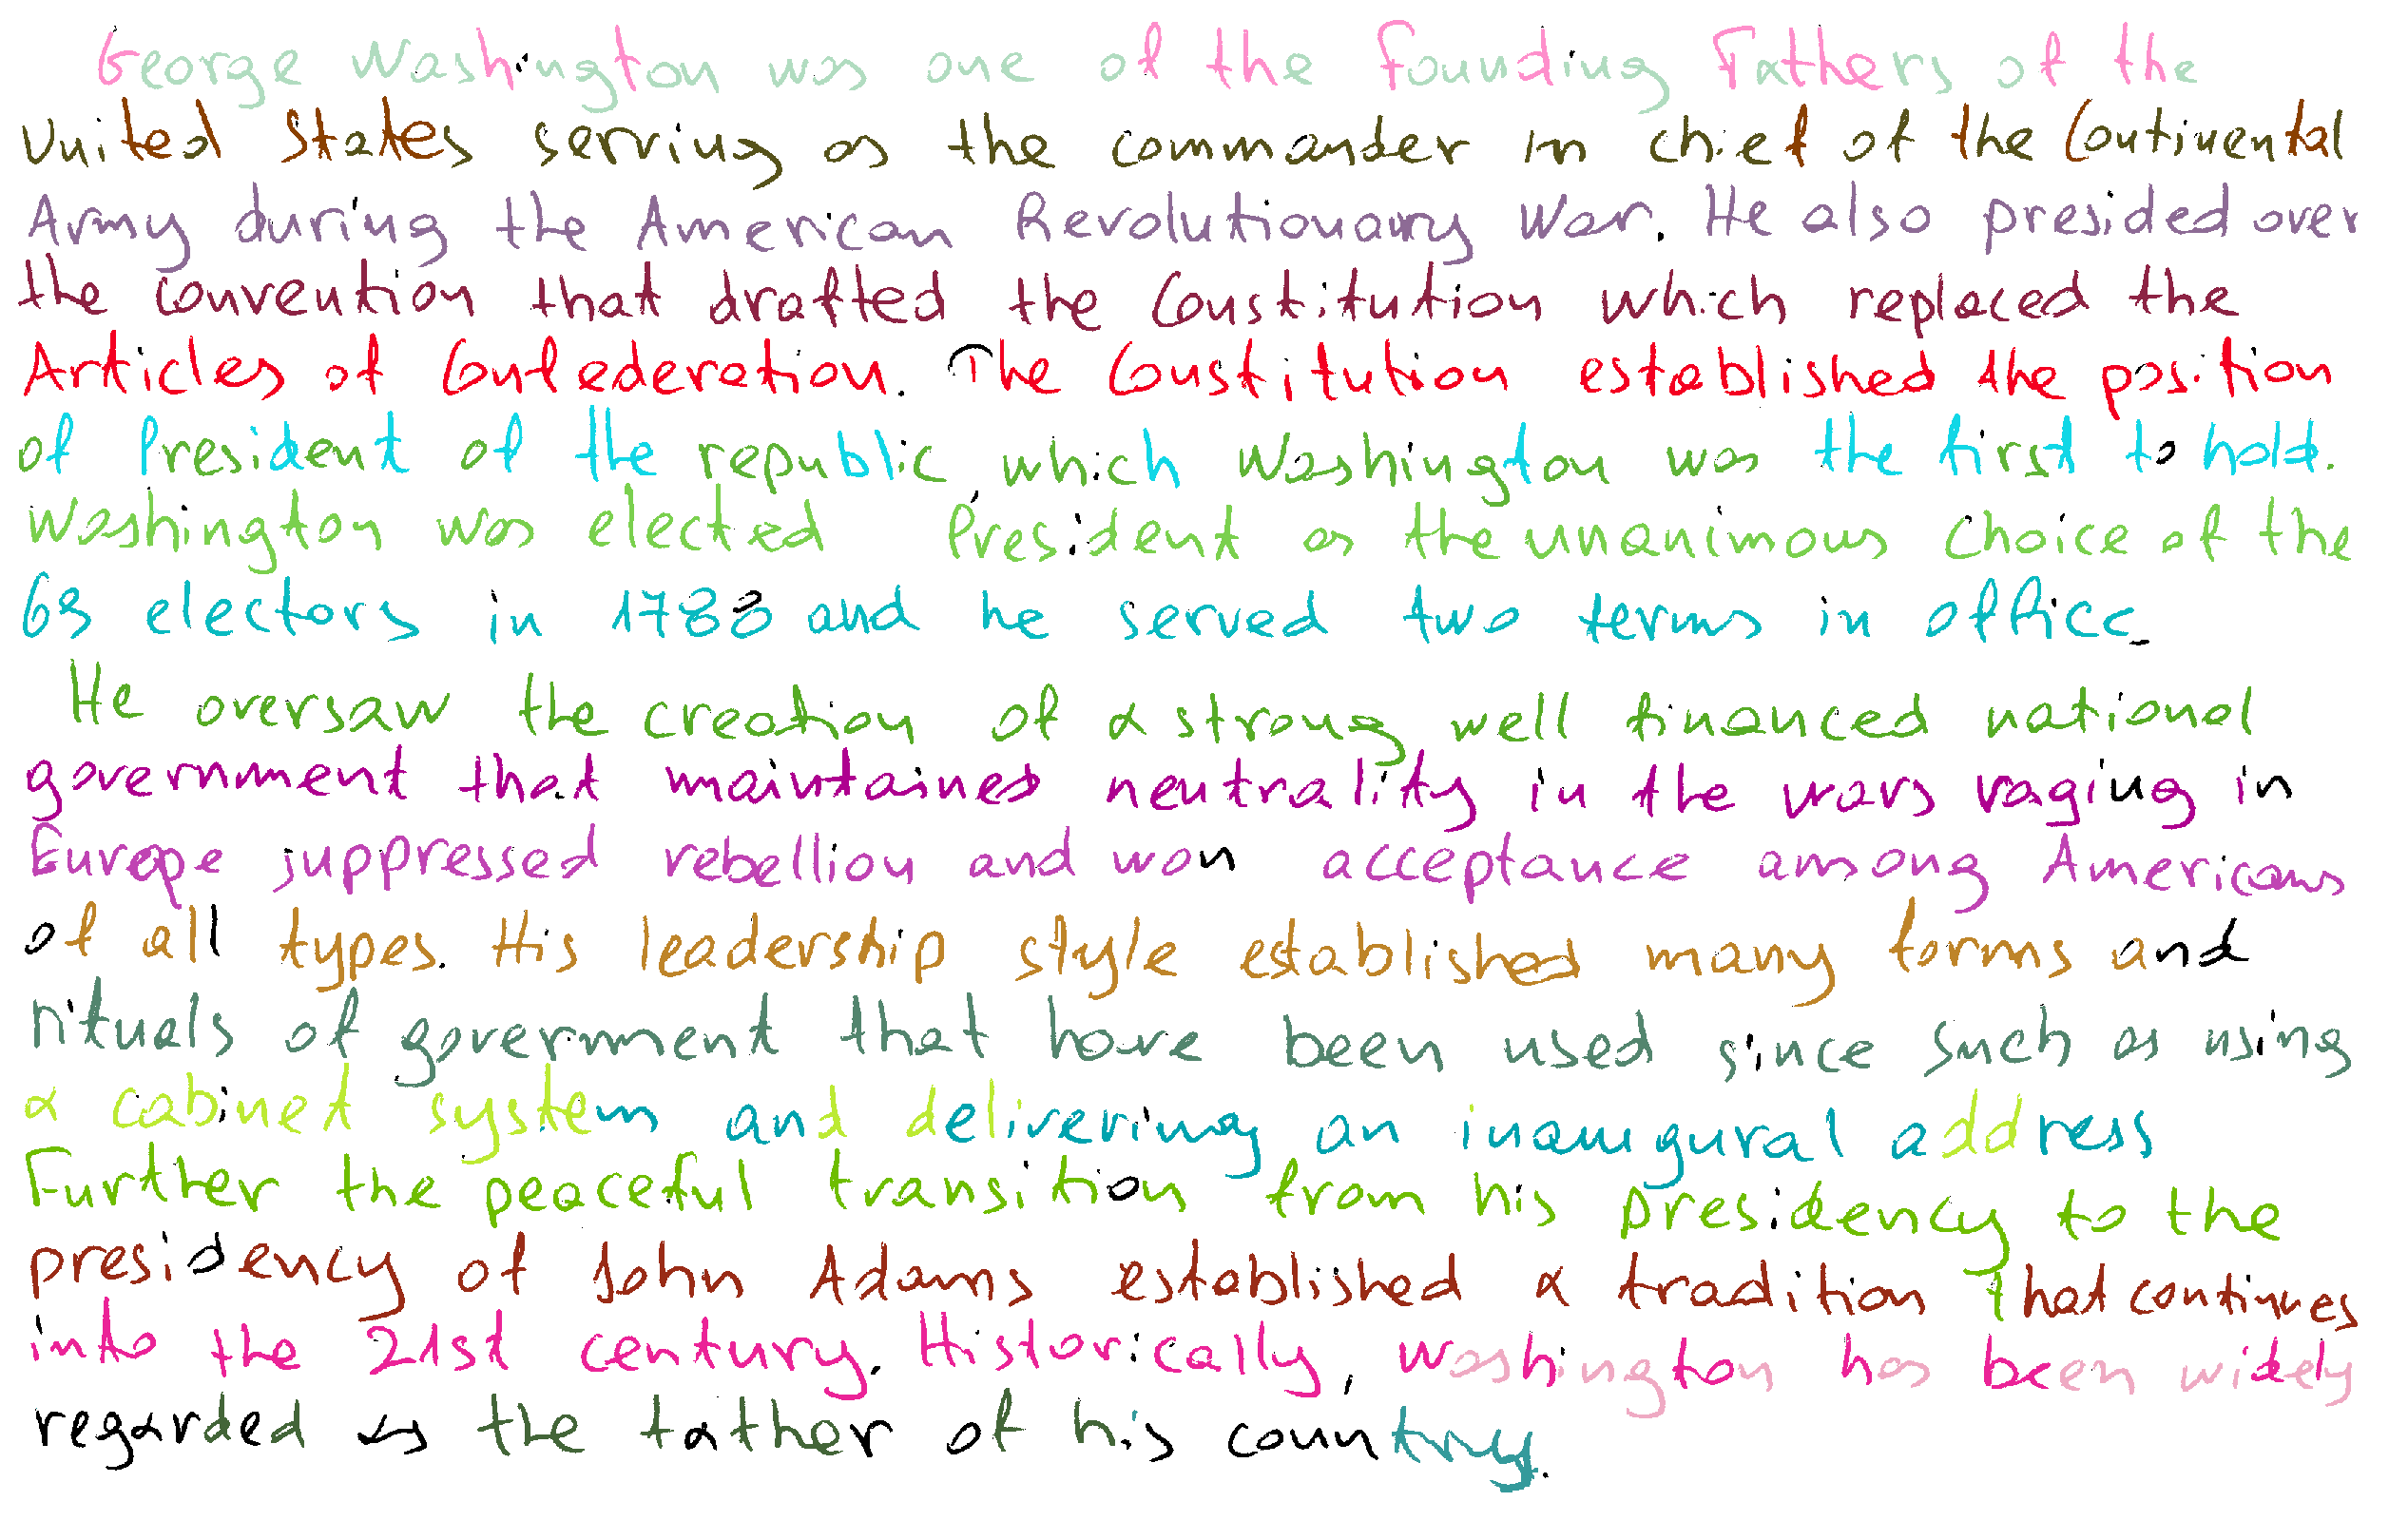 George Washington was one of the Founding Fathers of the
United States serving as the commander in chief of the Continental
Army during the American Revolutionary War. He also presided over
the convention that drafted the Constitution which replaced the
Articles of Confederation. The Constitution established the position
of President of the republic, which Washington was the first to hold.
Washington was elected President as the unanimous choice of the
69 electors in 1788 and he served two terms in office.
He oversaw the creation of a strong well financed national
government that maintained neutrality in the wars raging in
Europe suppressed rebellion and won acceptance among Americans
of all types. His leadership style established many forms and
rituals of goverment that have been used since such as using
a cabinet system and delivering an inaugural address
Further the peaceful transition from his presidency to the
presidency of John Adams established a tradition that continues
into the 21st century. Historically, Washington has been widely
regarded as the father of his country.